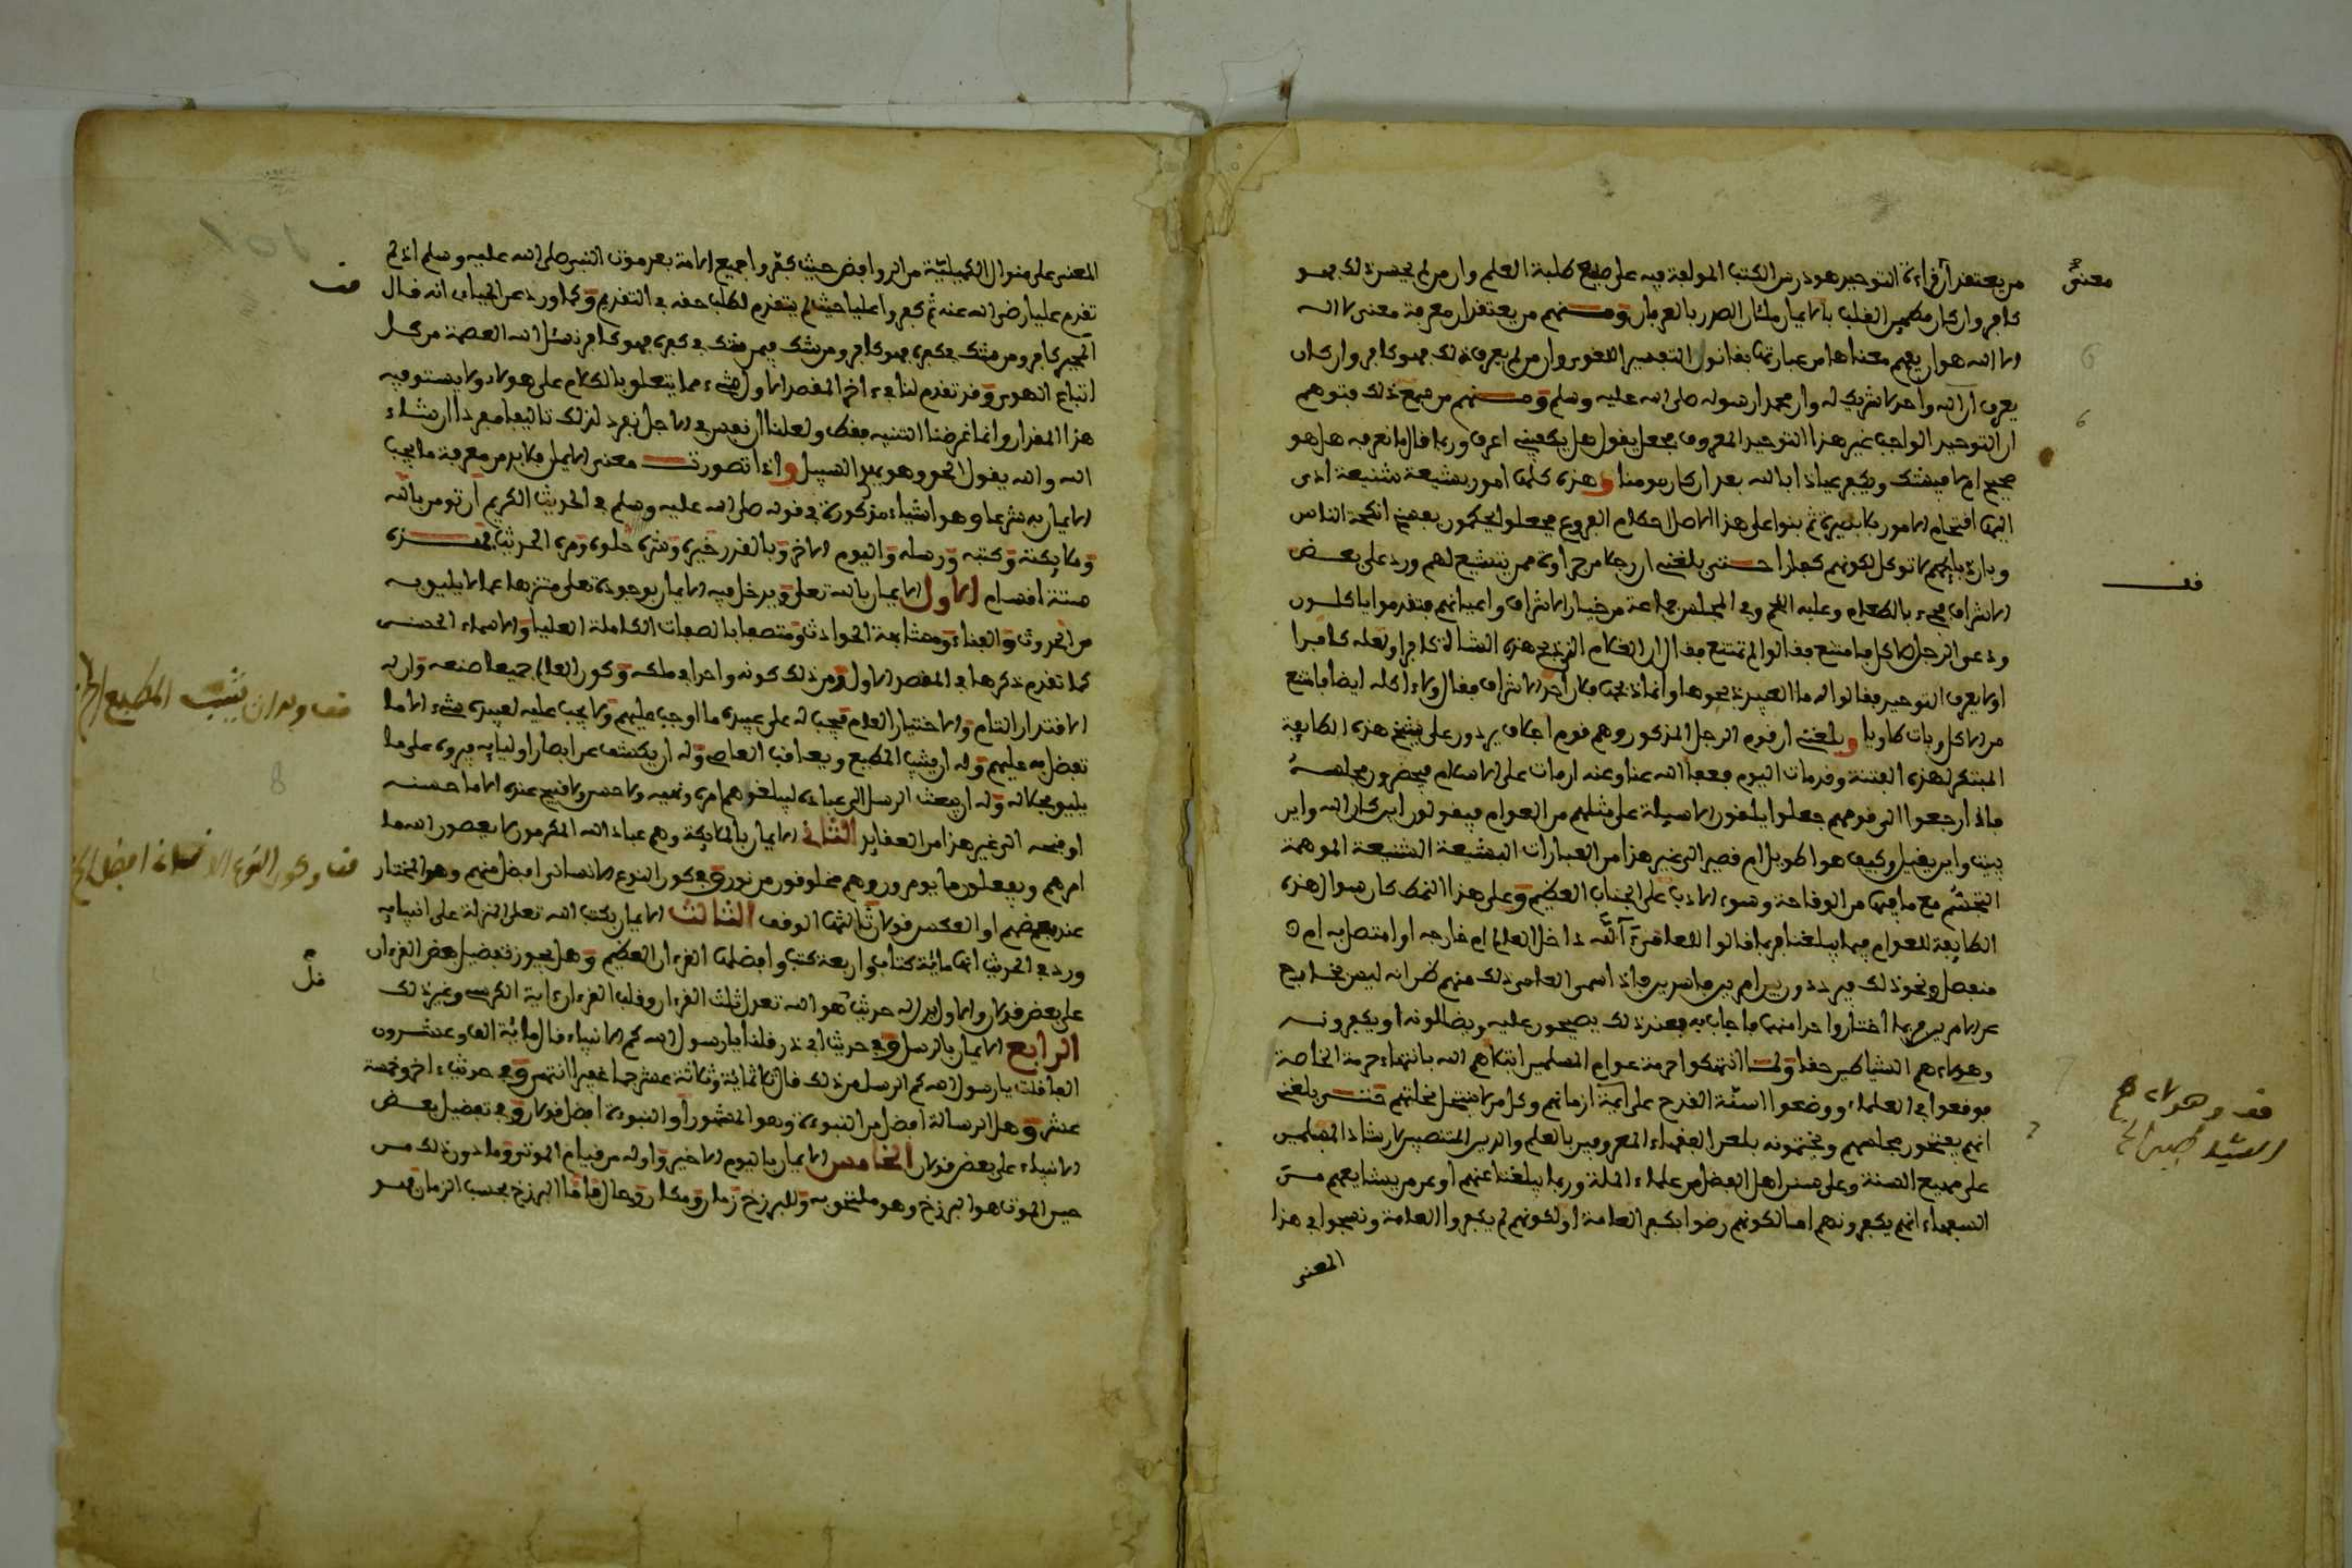 من يعتقد أن قراءة التوحيد هو درس الكتب المولفة فيه على طبع طلبة العلم وان من لم يحسن ذلك فهو
كافر وان كان مطمين القلب بالايمان ملئان الصدر بالعرفان ومنهم من يعتقد ان معرفة معنى لا اله
الا الله هو ان يفهم معناها من عبارتها بقانون التفسير اللغوي وان من لم يعرف ذلك فهو كافر وان كان
يعرف أن الله واحد لا شريك له وان محمدا رسوله صلى الله عليه وسلم ومنهم من سمع ذلك فتوهم
ان التوحيد الواجب غير هذا التوحيد المعروف فجعل يقول هل يكفيني اعرف وربما قال ما نعرفه هل هو
صحيح ام لا فيشك ويكفر عياذا بالله بعد ان كان مومنا وهذه كلها امور بشيعة شنيعة ادى
اليها اقتحام الامور بلا بصيرة ثم بنوا على هذا الاصل احكام الفروع فجعلوا يحكمون بفسخ انكحة الناس
وبان ذبايحهم لا توكل لكونهم كفارا حتى بلغني ان رجلا من جراوة ممن يتشيع لهم ورد على بعض
الاشراف فجيء بالطعام وعليه اللحم وفي المجلس جماعة من خيار الاشراف واعيانهم فتقدموا ياكلون
ودعوا الرجل للاكل فامتنع فقالوا لم تمتنع فقال ان الغلام الذي ذبح هذه الشاة لا كافر او لعله كافرا
او لا يعرف التوحيد فقالوا له ما العبيد ذبحوها وانما ذبحها فلان احد الاشراف فقال ولا اكله ايضا فامتنع
من الاكل وبات طاويا وبلغني ان قوم الرجل المذكور وهم قوم اجلاف يردون على شيخ هذه الطايفة
المبتكر لهذه الفتنة وقد مات اليوم فعفا الله عنا وعنه ان مات على الاسلام فيحضرون مجلسه
فاذا رجعوا الى قومهم جعلوا يلقون الاسيلة على مثلهم من العوام فيقولون اين كان الله واين
يبيت واين يقيل وكيف هو اطويل ام قصير الى غير هذا من العبارات البشيعة الشنيعة الموهمة
التجسم مع ما فيها من الوقاحة وسوء الادب على الجناب العظيم وعلى هذا النمط كان سوال هذه
الطايفة للعوام فيما يبلغنا فربما قالوا للعامي أالله داخل العالم ام خارجه او متصل به ام
منفصل ونحو ذلك
وهولاء هم الشياطين حقا ولما انتهكوا حرمة عوام المسلمين ابتلاهم الله بانتهاء حرمة الخاصة
فوقعوا في العلماء ووضعوا السنة القدح على ايمة ازمانهم وكل من لا ينتحل نحلتهم حتى بلغني
انهم يفتتحون مجلسهم ويختمونه بلعن الفقهاء المعروفين بالعلم والدين المنتصبين لارشاد المسلمين
على مهيع السنة وعلى سنن اهل الفضل من علماء الملة وربما يبلغنا عنهم او عمن يشايعهم من
السفهاء انهم يكفرونهم اما لكونهم رضوا بكفر العامة او لكونهم لم يكفروا العامة ونسجوا في هذا
المعنى
معنى
قف
قف وهولاء هم
الشياطين الخ
المعنى على منوال الكميلية من الروافض حيث كفروا جميع الامة بعد موت النبي صلى الله عليه وسلم اذ لم
تقدم عليا رضي الله عنه ثم كفروا عليا حيث لم يتقدم لطلب حقه في التقديم وكما ورد عن الجياني انه قال
المجبر كافر ومن شك في كفره فهو كافر ومن شك فيمن شك في كفره فهو كافر نسئل الله العصمة من كل
اتباع الهوى وقد تقدم لنا في ءاخر المقصد الاول شيء مما يتعلق بالكلام على هولاء ولا يستوفيه
هذا المقدار وانما غرضنا التنبيه فقط ولعلنا ان نفس في الاجل نفرد لذلك تاليفا مفردا ان شاء
الله والله يقول الحق وهو يهدي السبيل واذا تصورت معنى الايمان فلابد من معرفة ما يجب
الايمان به شرعا وهو اشياء مذكورة في قوله صلى الله عليه وسلم في الحديث الكريم أن تومن بالله
وملايكته وكتبه ورسله واليوم الاخر وبالقدر خيره وشره حلوه ومره الحديث فهذه
ستة اقسام الاول الايمان بالله تعلى ويدخل فيه الايمان بوجوده تعلى منزها عما لا يليق به
من الحدوث والفناء ومشابهة الحوادث ومتصفا بالصفات الكاملة العليا والاسماء الحسنى
كما تقدم ذكرها في المقصد الاول ومن ذلك كونه واحدا في ملكه وكون العالم جميعا صنعه وان له
الاقتدار التام والاختيار العام فيجب له على عبيده ما اوجب عليهم ولا يجب عليه لعبيده شيء الا ما
تفضل به عليهم وله ان يثيب المطيع ويعاقب العاصي وله ان يكشف عن ابصار اوليايه فيروه على ما
يليق بجلاله وله ان يبعث الرسل الى عباده ليبلغوهم امره ونهيه ولا حسن ولا قبيح عنده الا ما حسنه
او قبحه الى غير هذا من العقايد الثاني الايمان بالملايكة وهم عباد الله المكرمون لا يعصون الله ما
امرهم ويفعلون ما يومرون وهم مخلوقون من نور وفي كون النوع الانساني افضل منهم وهو المختار
عند بعضهم او العكس قولان ثالثها الوقف الثالث الايمان بكتب الله تعلى المنزلة على انبيايه
ورد في الحديث انها مائة كتاب واربعة كتب وافضلها القرءان العظيم وهل يجوز تفضيل بعض القرءان
على بعض قولان والاول يدل له حديث قل هو الله تعدل ثلث القرءان وقلب القرءان وءاية الكرسي وغير ذلك
الرابع الايمان بالرسل وفي حديث ابي ذر قلنا يا رسول الله كم الانبياء قال مائة الف وعشرون
الفا قلت يا رسول الله كم الرسل من ذلك قال ثلاثمائة وثلاثة عشر جما غفيرا انتهى وفي حديث ءاخر وخمسة
عشر وهل الرسالة افضل من النبوءة وهو المشهور أو النبوءة افضل قولان وفي تفضيل بعض
الانبياء على بعض قولان الخامس الايمان باليوم الاخير واوله من قيام الموتى وما دون ذلك من
حين الموت هو البرزخ وهو ملتحق به وللبرزخ زمان ومكان وحال فاما البرزخ بحسب الزمان فهو
قف
قف وله ان يثيب المطيع الخ
قف وكون النوع الانسانى افضل الخ